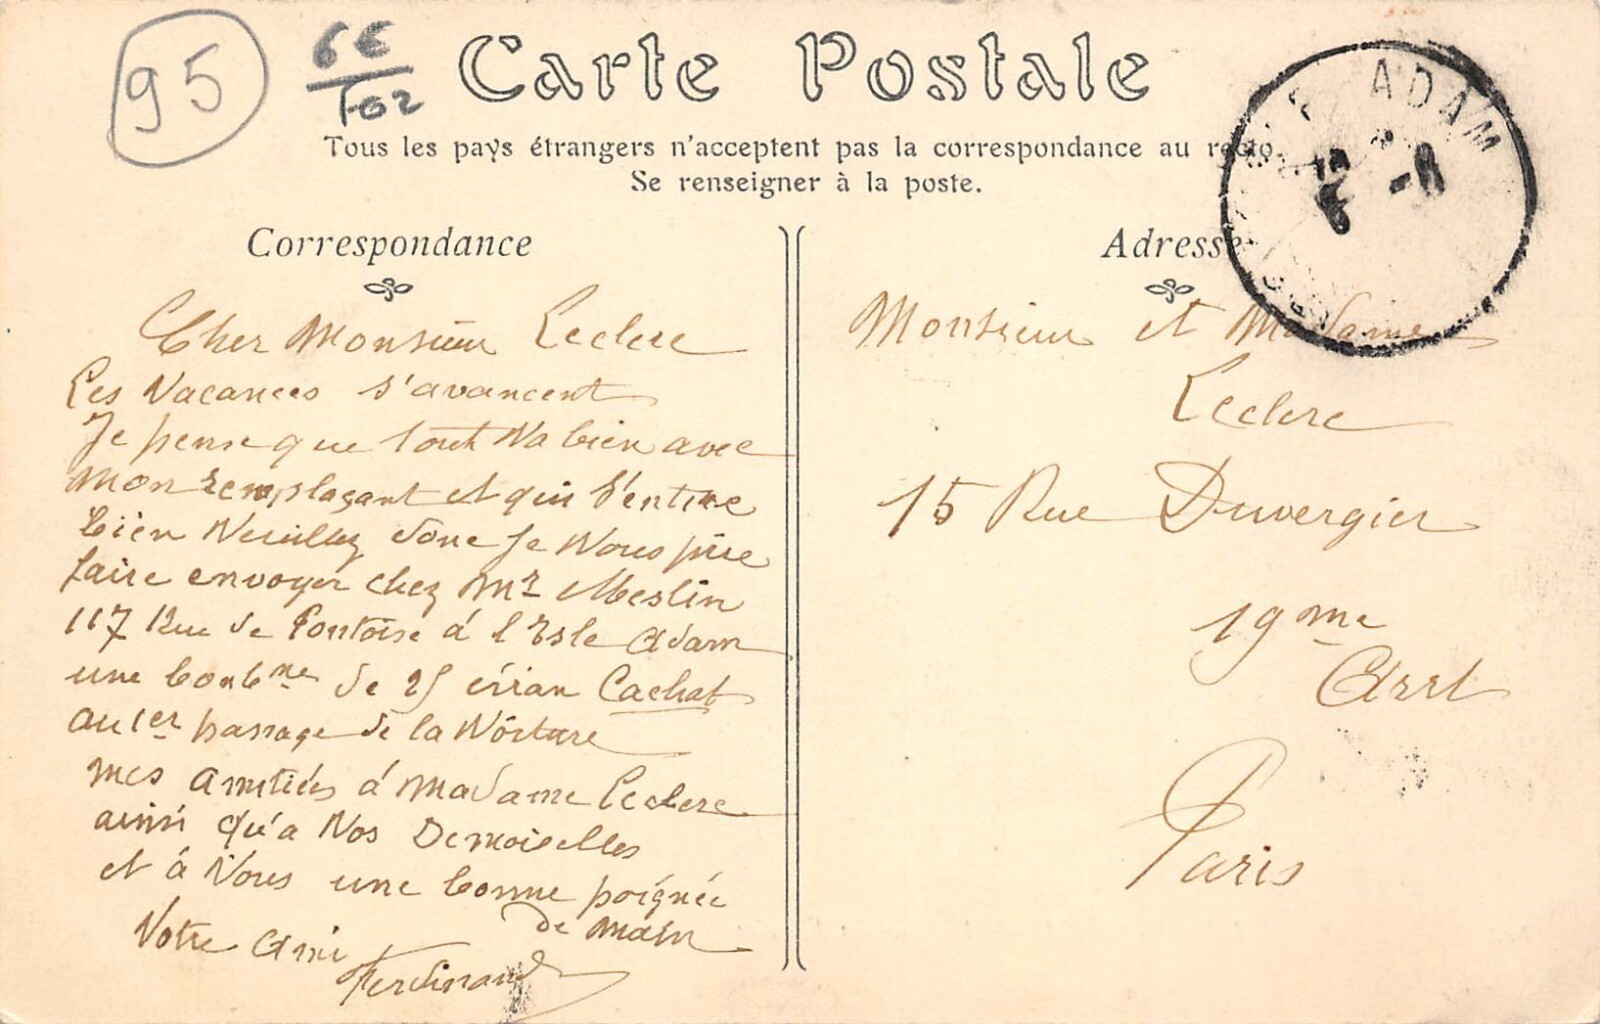 95
6€
T02
Carte Postale
Tous les pays étrangers n'acceptent pas la correspondance au recto.
Se renseigner à la poste.
Correspondance
Cher Monsieur Leclerc
Les Vacances s'avancent
Je pense que tout Va bien avec
Mon remplaçant et qui s'entire
bien Veuillez donc Je Vous prie
faire envoyer chez Mr Meslin
117 Rue de Pontoise à l'Isle Adam
une bonbne de 25 évian Cachat
au 1er passage de la Voiture
mes amitiés à Madame Leclerc
ainsi qu'a Vos Demoiselles
et à Vous une bonne poignée
de Main
Votre Ami
Ferdinand
ADAM
Adresse
Monsieur et Madame
Leclerc
15 Rue Duvergier
19me
Arrt
Paris